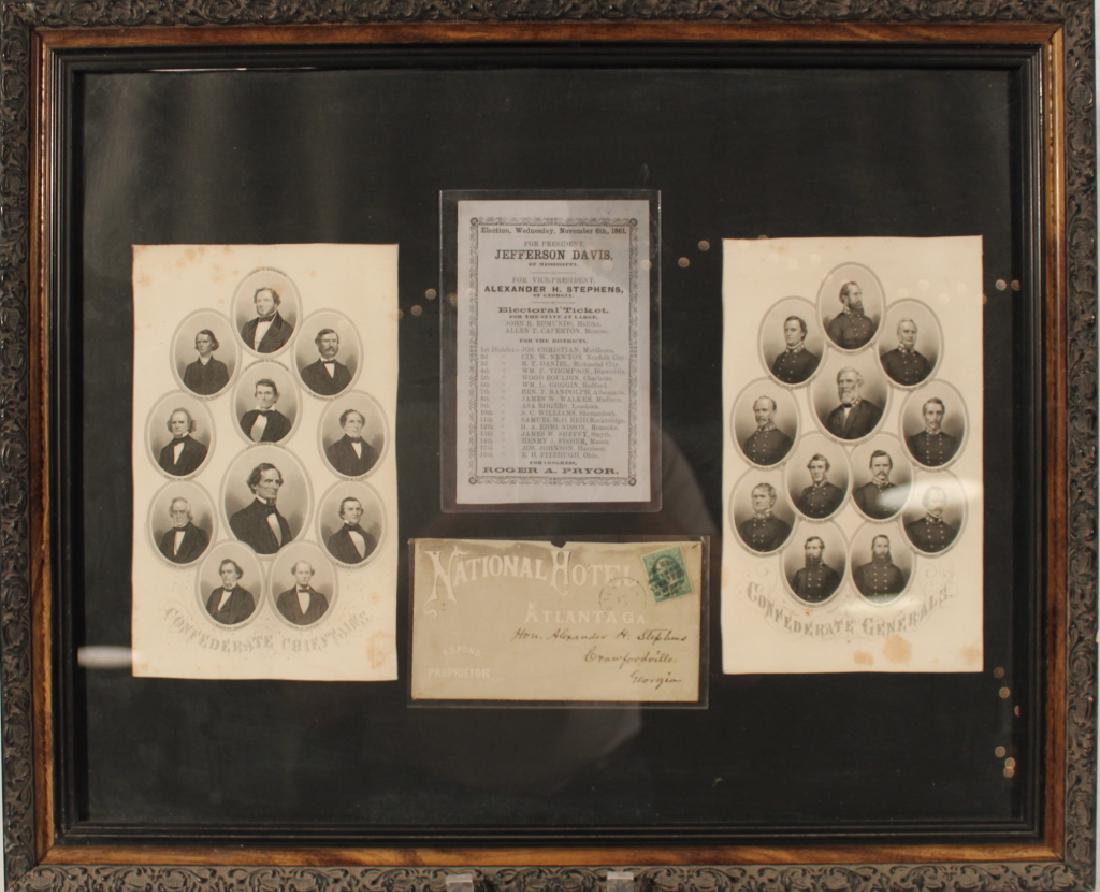 Election, Wednesday, November 6th, 1861.
FOR PRESIDENT,
JEFFERSON DAVIS,
OF MISSISSIPPI.
FOR VICE-PRESIDENT,
ALEXANDER H. STEPHENS,
OF GEORGIA.
Electoral Ticket.
FOR THE STATE AT LARGE.
JOHN R. EDMUNDS, Halifax.
ALLEN T. CAPERTON, Monroe.
FOR THE DISTRICTS.
1st District—JOS. CHRISTIAN, Middlesex.
2d " CIN. W. NEWTON, Norfolk City.
3d " R. T. DANIEL, Richmond City.
4th " WM. F. THOMPSON, Dinwiddie.
5th " WOOD BOULDIN, Charlotte.
6th " WM. L. GOGGIN, Bedford.
7th " BEN. F. RANDOLPH, Albemarle.
8th " JAMES W. WALKER, Madison.
9th " ASA ROGERS, Loudoun.
10th " S. C. WILLIAMS, Shenandoah.
11th " SAMUEL McD. REID, Rockbridge.
12th " H. A. EDMUNDSON, Roanoke.
13th " JAMES W. SHEFFEY, Smyth.
14th " HENRY J. FISHER, Mason.
15th " JOS. JOHNSON, Harrison.
16th " E. H. FITZHUGH, Ohio.
FOR CONGRESS,
ROGER A. PRYOR.
CONFEDERATE CHIEFTAINS.
NATIONAL HOTEL
ATLANTA GA.
PROPRIETOR
Hon. Alexander H. Stephens
Crawfordville
Georgia
CONFEDERATE GENERALS.